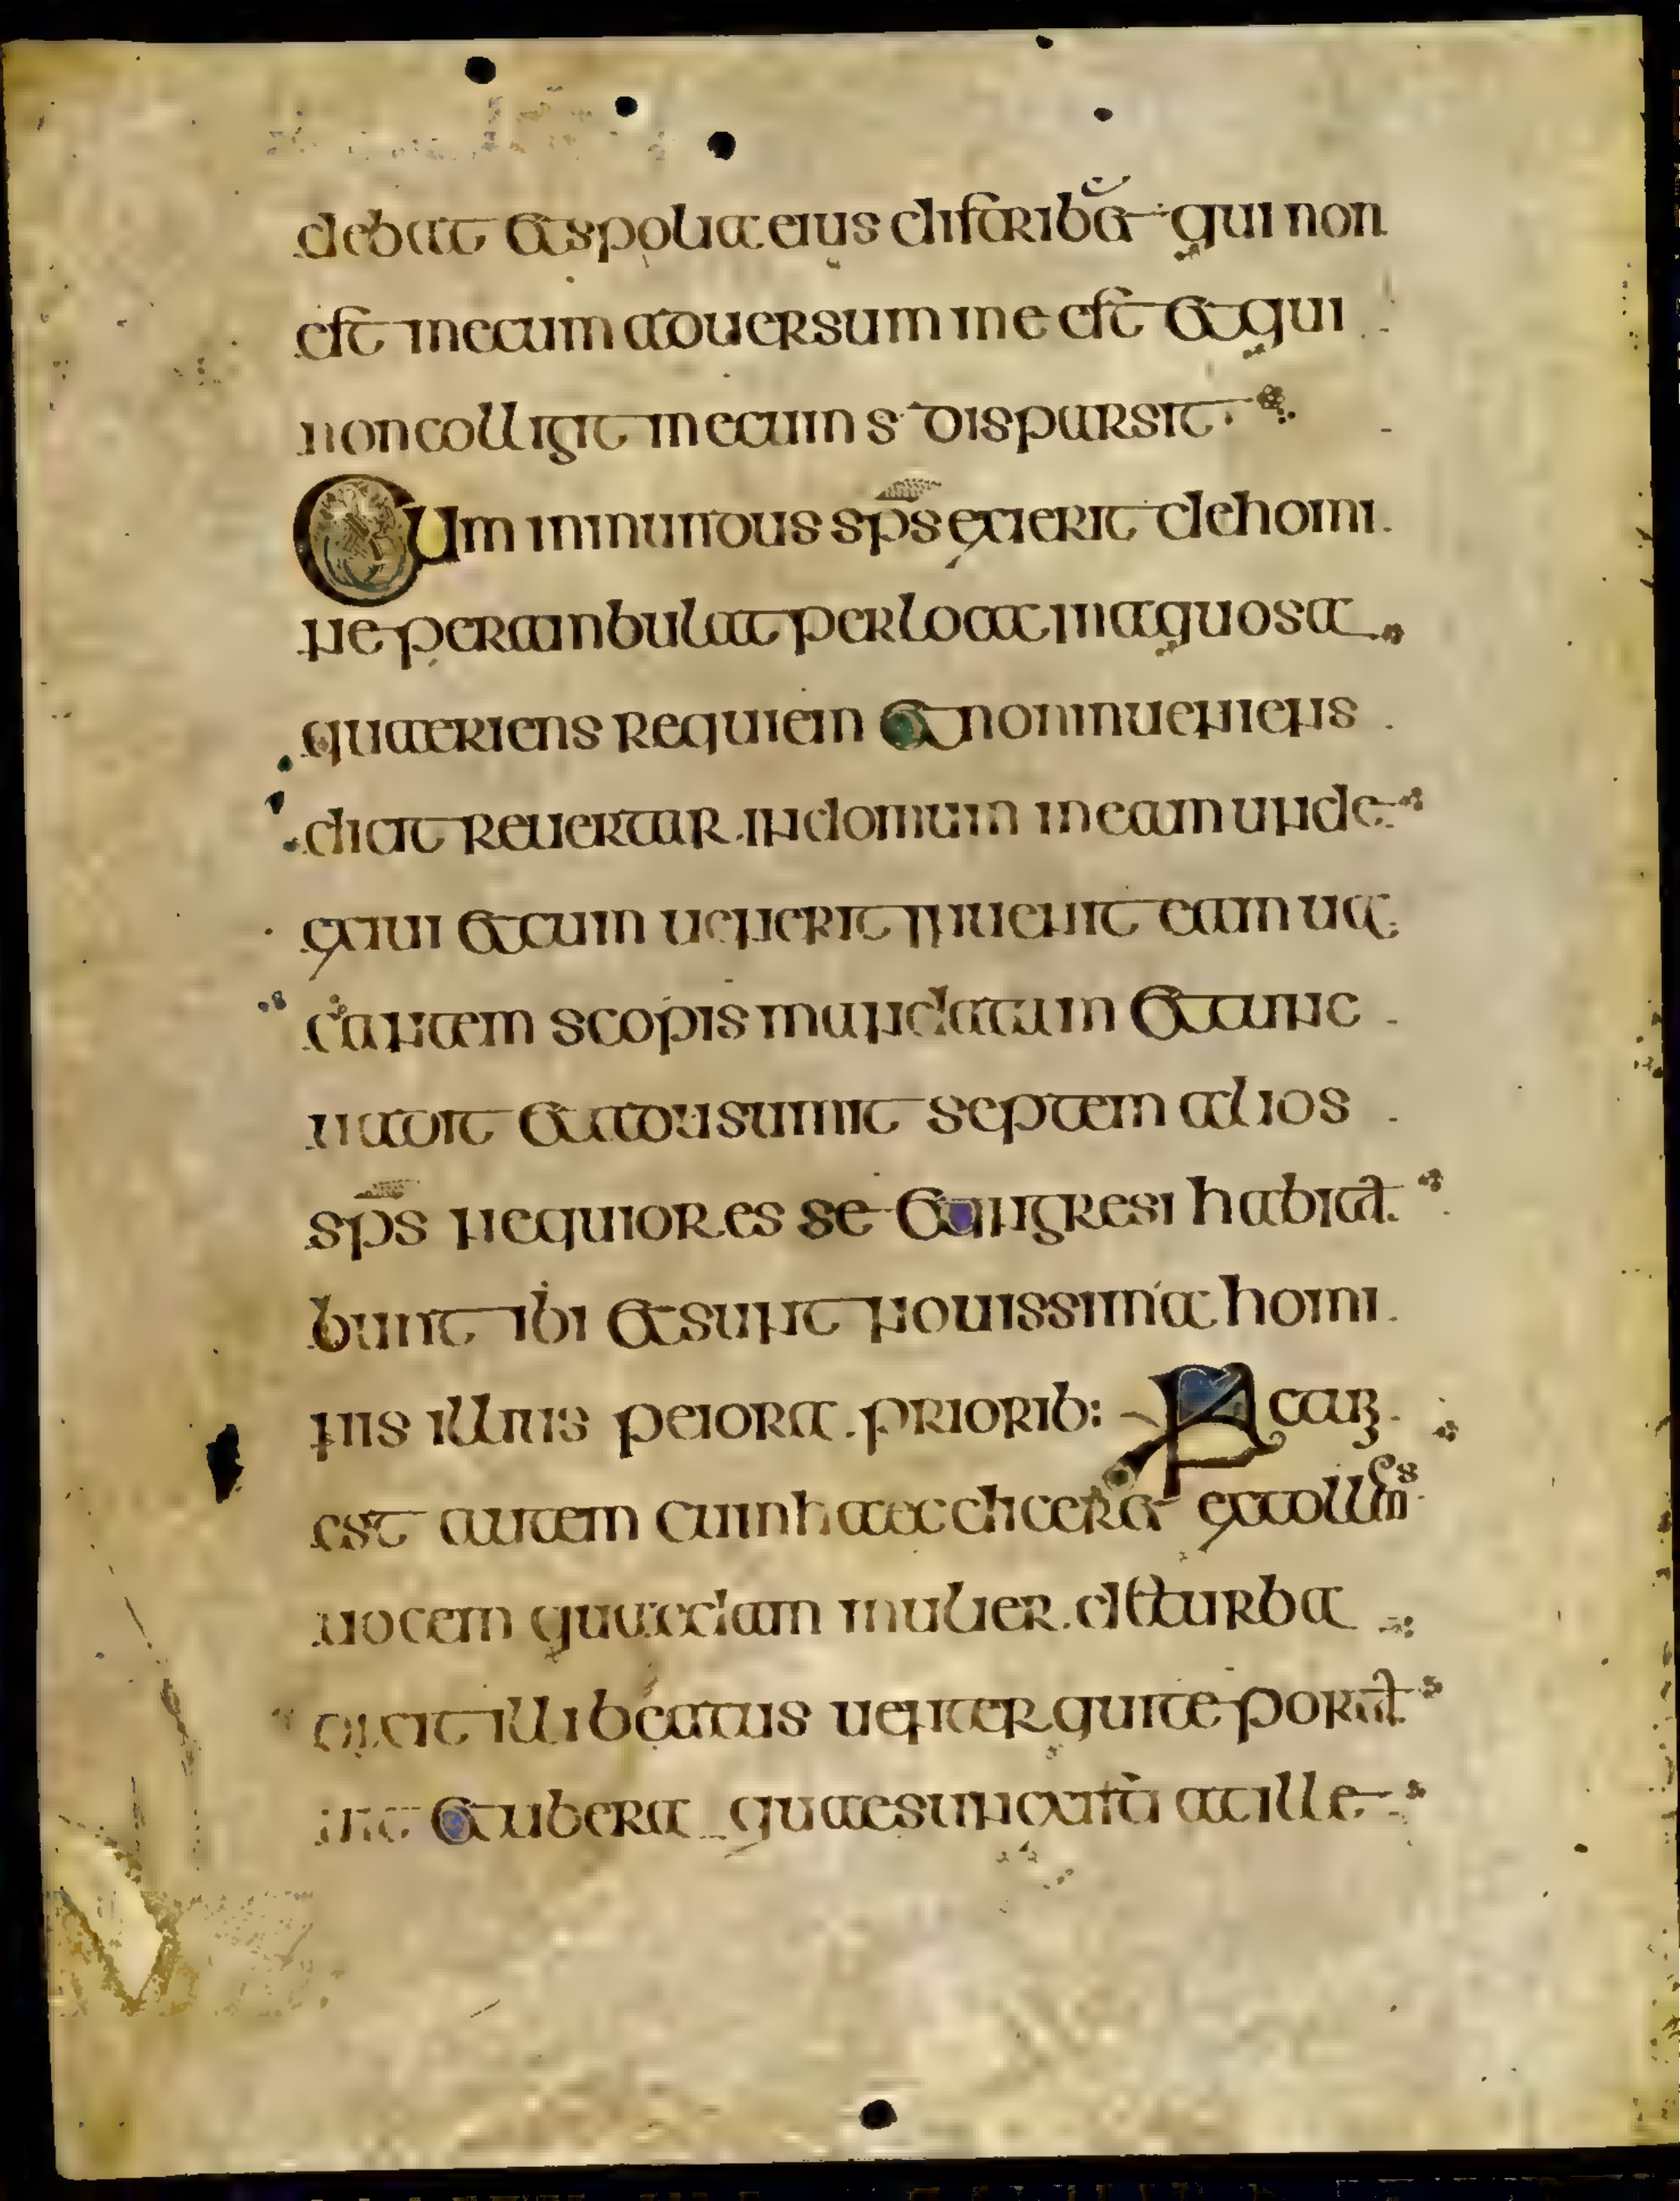 debat et spolia eius distribet qui non
est mecum aduersum me est et qui
non colligit mecum s dispursit
Cum inmundus sps exierit de homi
ne perambulat per loca inaquosa
quaeriens requiem et non inueniens
dicit reuertar in domum meam unde
exiui et cum uenerit inuenit eam ua
cantem scopis mundatam et tunc
uadit et adsumit septem alios
sps nequiores se et ingresi habita
bunt ibi et sunt nouissima homi
nis illius peiora priorib: Fac
est autem cum haec diceret extollens
uocem quaedam mulier de turba
dixit illi beatus uenter qui te porta
uit et ubera quae suxisti at ille